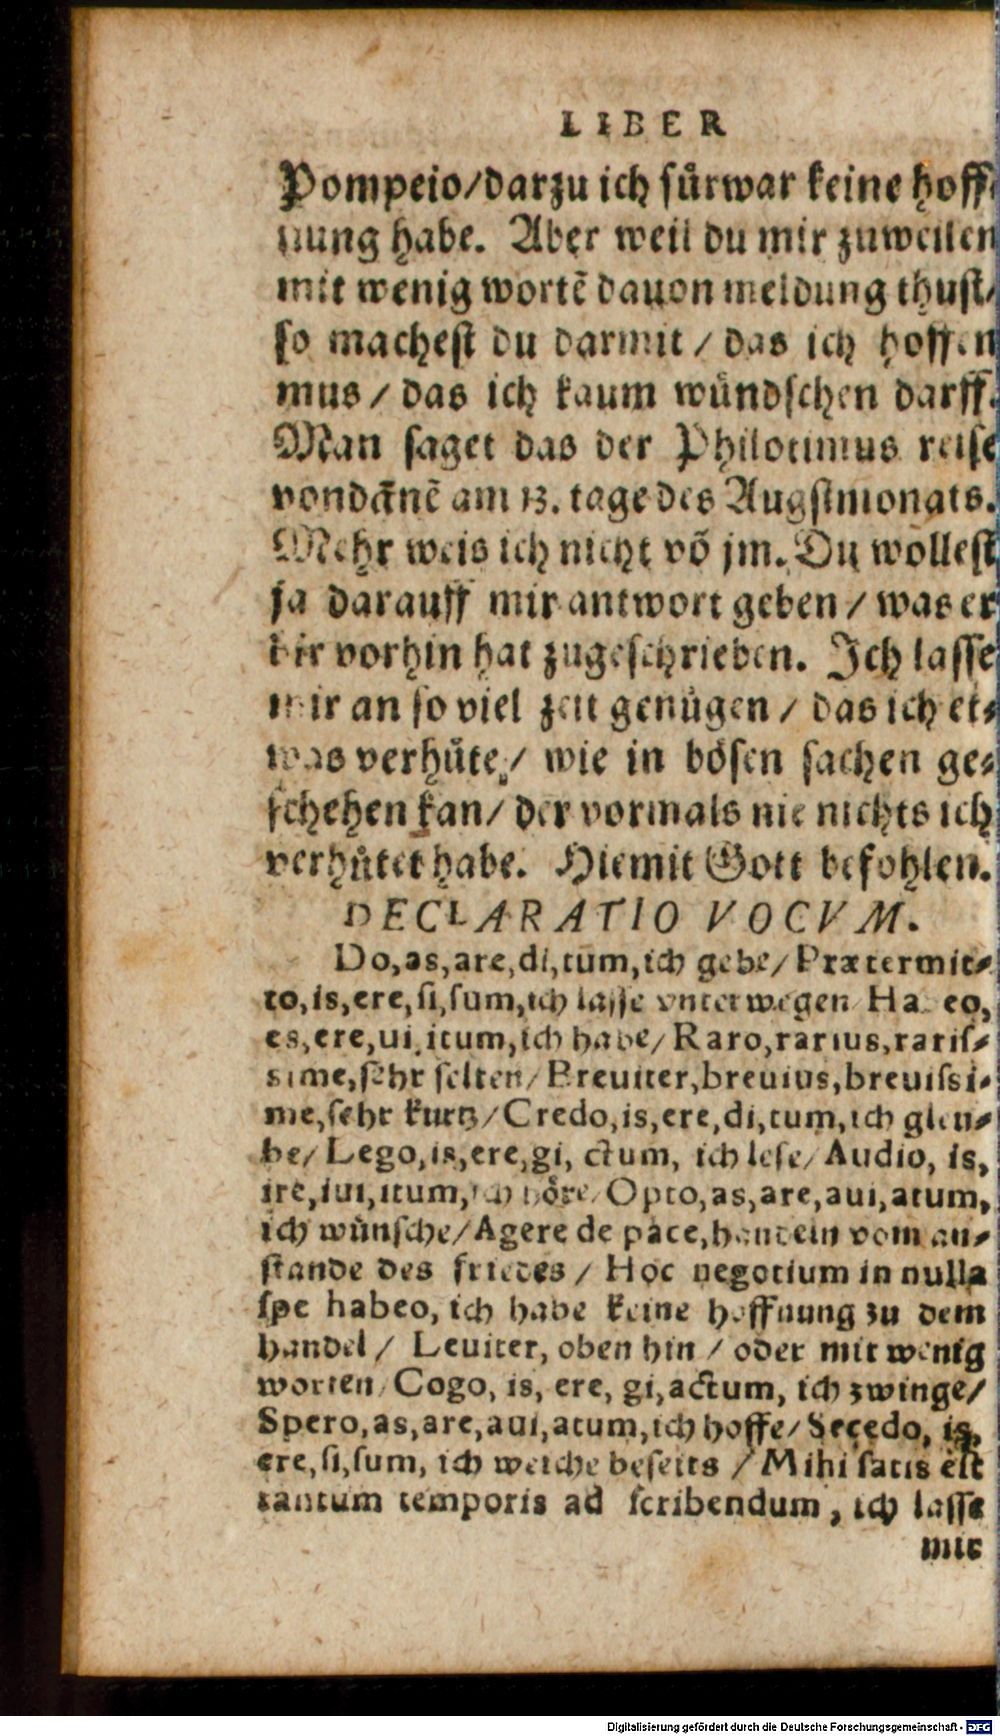 LIBER
Pompeio/darzu ich fürwar keine hoff⸗
nung habe. Aber weil du mir zuweilen
mit wenig wortẽ dauon meldung thust/
so machest du darmit / das ich hoffen
mus / das ich kaum wündschen darff.
Man saget das der Philotimus reise
vondãnẽ am 13. tage des Augstmonats.
Mehr weis ich nicht võ jm. Du wollest
ja darauff mir antwort geben / was er
dir vorhin hat zugeschrieben. Ich lasse
mir an so viel zeit genügen / das ich et⸗
was verhüte / wie in bösen sachen ge⸗
schehen kan/ der vormals nie nichts ich
verhütet habe. Hiemit Gott befohlen.
DECLARATIO VOCVM.
Do,as,are,di,tum,ich gebe/ Prætermit⸗
to,is,ere,si,sum,ich lasse vnterwegen Habeo,
es,ere,ui,itum,ich habe/ Raro,rarius,raris⸗
sime,sehr selten/ Breuiter,breuius,breuissi⸗
me,sehr kurtz/ Credo,is,ere,di,tum,ich gleu⸗
be/ Lego,is,ere,gi, ctum, ich lese/ Audio, is,
ire,iui,itum,ich höre/ Opto,as,are,aui,atum,
ich wünsche/ Agere de pace,handeln vom an⸗
stande des friedes / Hoc negotium in nulla
spe habeo, ich habe keine hoffnung zu dem
handel / Leuiter, oben hin / oder mit wenig
worten/ Cogo, is, ere, gi,actum, ich zwinge/
Spero,as,are,aui,atum,ich hoffe/ Secedo, is,
ere,si,sum, ich weiche beseits / Mihi satis est
tantum temporis ad scribendum, ich lasse
mir
Digitalisierung gefördert durch die Deutsche Forschungsgemeinschaft - DFG